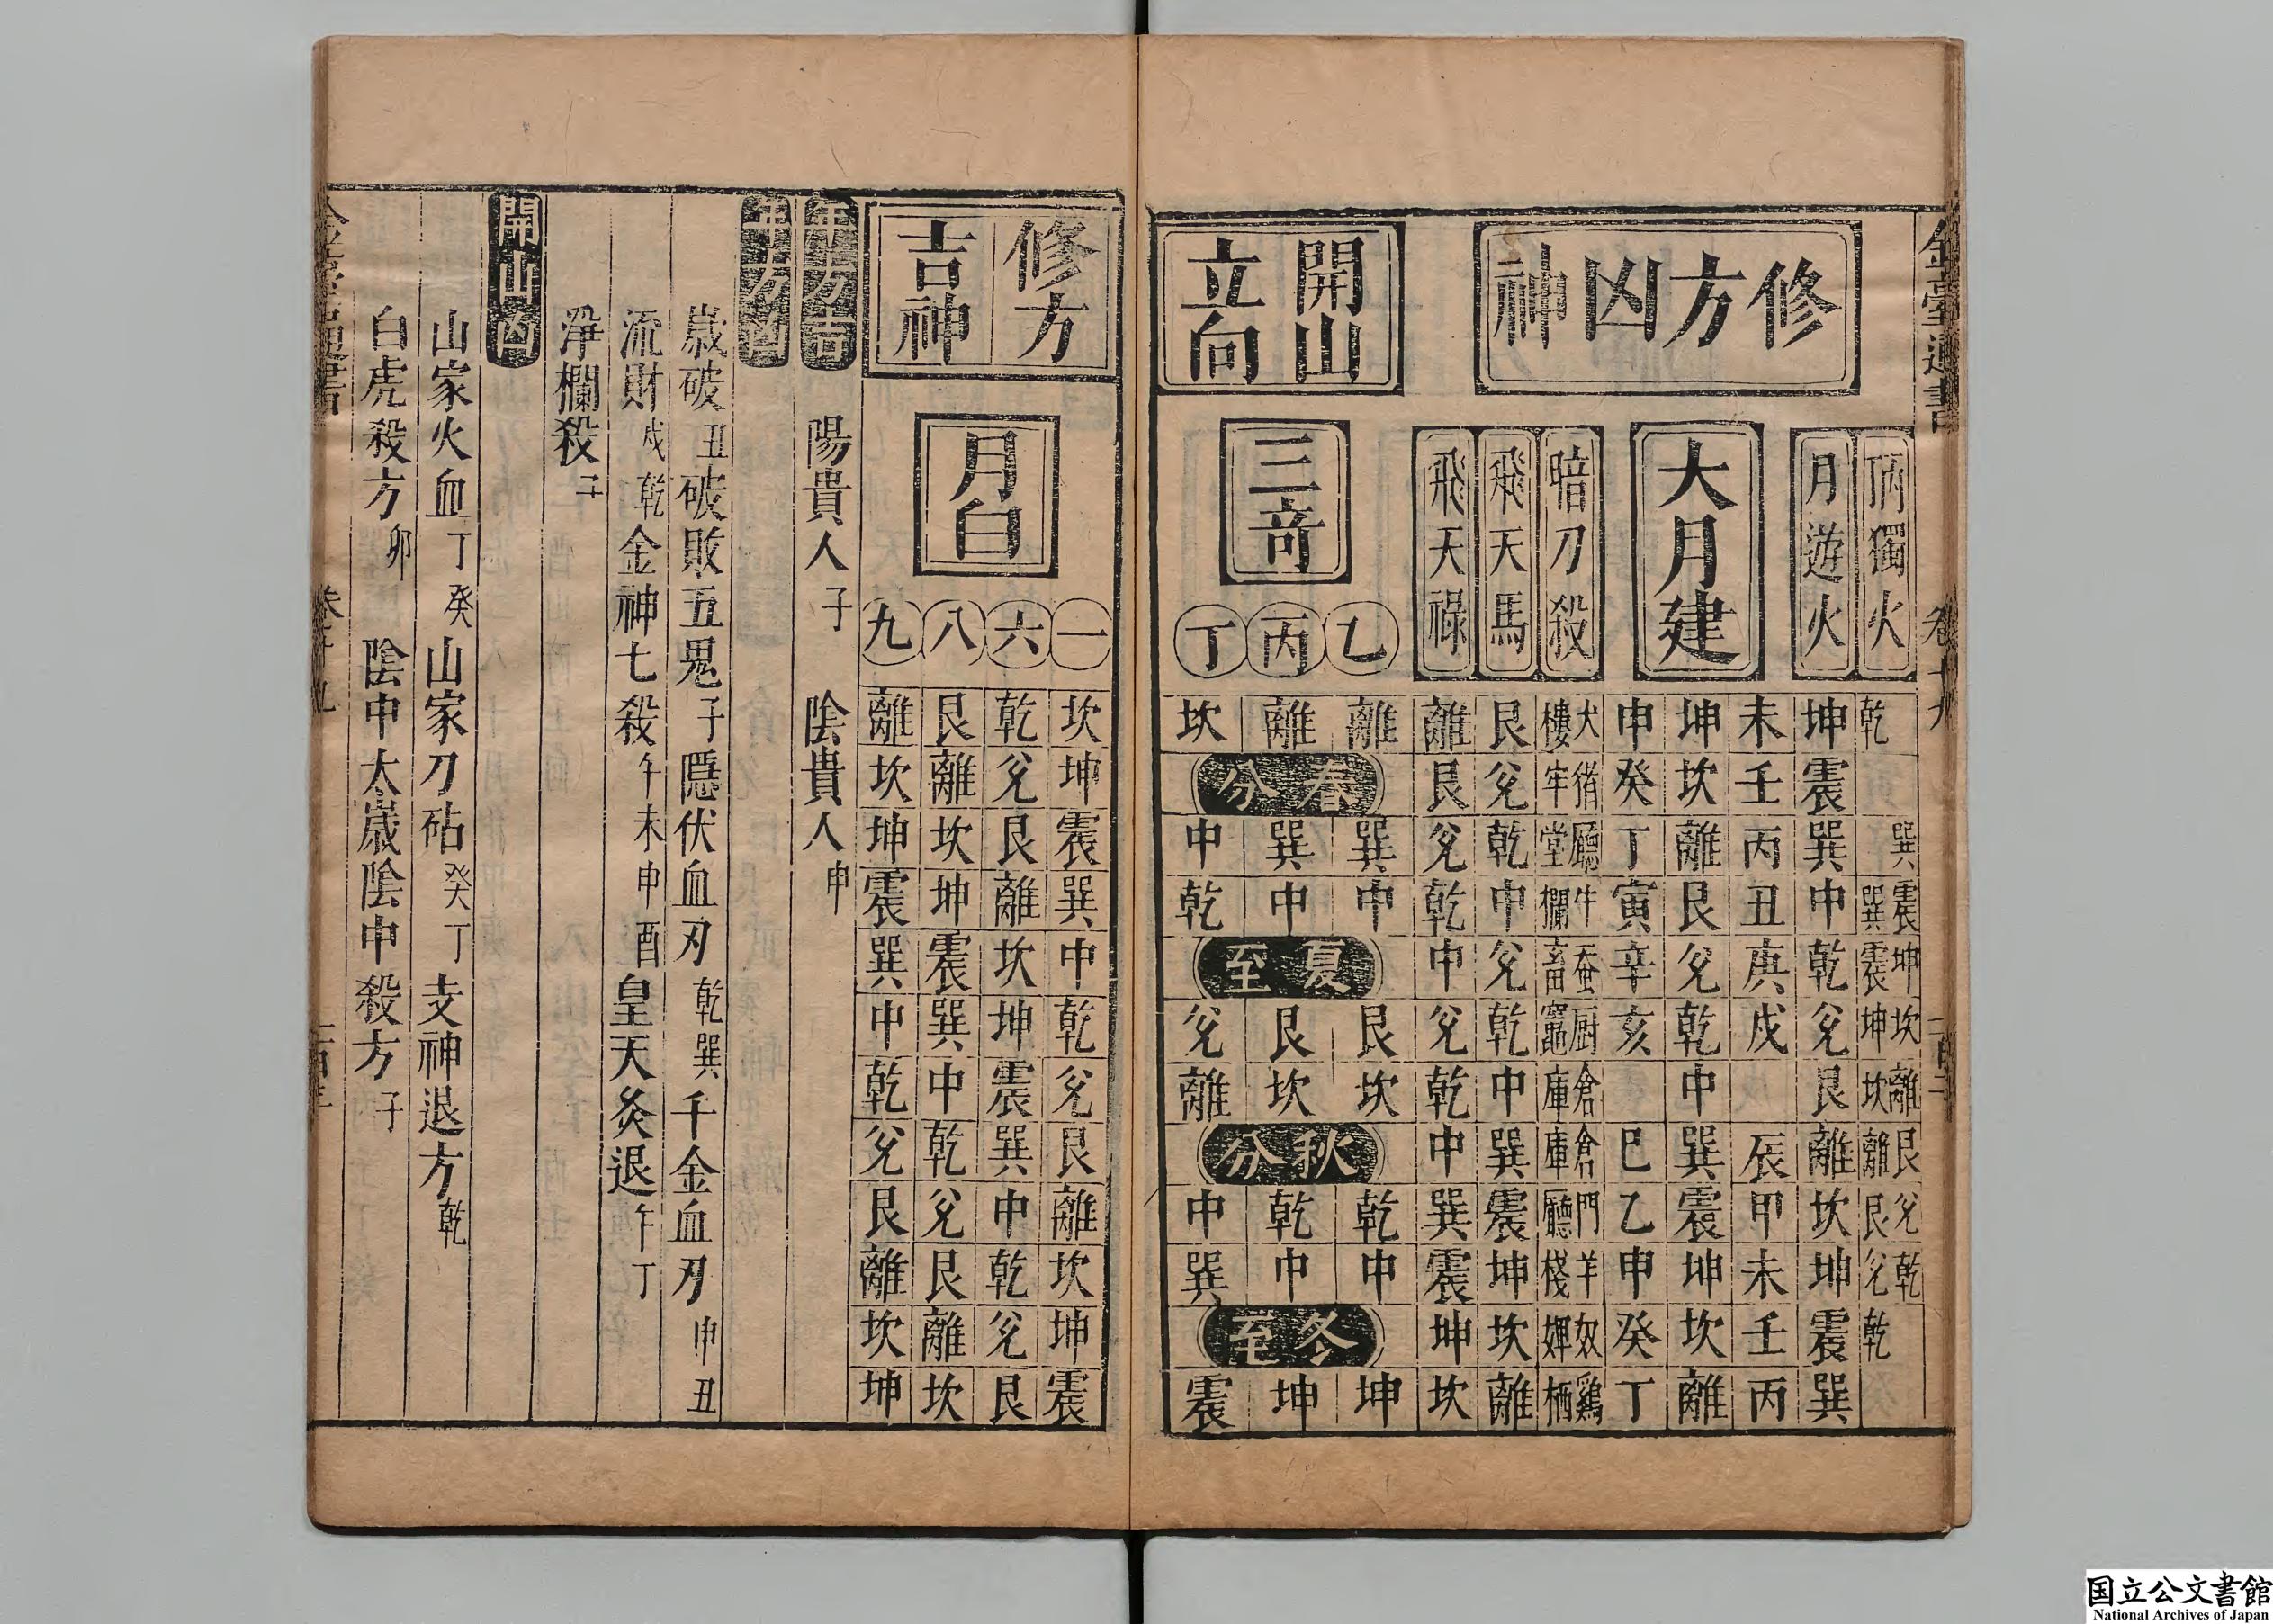 金臺通書
卷十九
修方凶神
丙獨火
乾
巽
巽震
震坤
坤坎
坎離
離艮
艮兌
兌乾
乾
月遊火
坤震巽中乾兌艮離坎坤震巽
大月建
未壬丙丑庚戌
辰甲未壬丙
坤坎離艮兌乾中巽震坤坎離
申癸丁寅辛亥
巳乙申癸丁
暗刀殺
犬樓
猪牢
廳堂
牛欄
蚕畜
厨竈
倉庫
倉庫
門廳
羊棧
奴婢
鷄栖
飛天馬
艮兌乾中兌乾中巽震坤坎離
飛天祿
離艮兌乾中兌乾中巽震坤坎
開山
立向
三竒
乙
離
巽中
艮坎
乾中
坤
丙
離
巽中
艮坎
乾中
坤
丁
坎
中乾
兌離
中巽
震
春分
夏至
秋分
冬至
修方
吉神
月白
一
坎坤震巽中乾兌艮離坎坤震
六
乾兌艮離坎坤震巽中乾兌艮
八
艮離坎坤震巽中乾兌艮離坎
九
離坎坤震巽中乾兌艮離坎坤
年方吉
陽貴人子 陰貴人申
年方凶
歲破丑破敗五鬼子隱伏血刃乾巽千金血刃申丑
流財戌乾金神七殺午未申酉皇天灸退午丁
淨欄殺子
開山凶
山家火血丁癸山家刀砧癸丁支神退方乾
白虎殺方卯 陰中太歲陰中殺方子
国立公文書館
National Archives of Japan